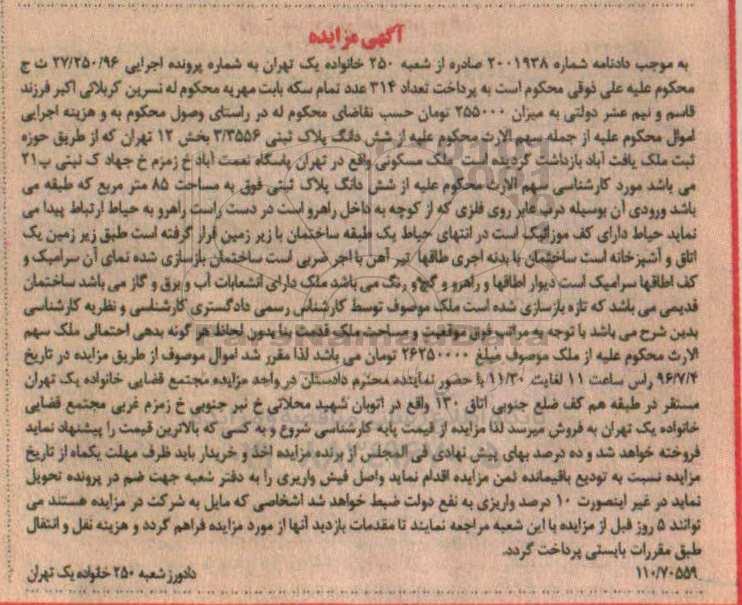 آگهی مزایده
به موجب دادنامه شماره ۲۰۰۱۹۳۸ صادره از شعبه ۲۵۰ خانواده یک تهران به شماره پرونده اجرایی ۲۷/۲۵۰/۹۶ ث ج
محکوم علیه علی ذوقی محکوم است به پرداخت تعداد ۳۱۴ عدد تمام سکه بابت مهریه محکوم له نسرین کربلائی اکبر فرزند
قاسم و نیم عشر دولتی به میزان ۲۵۵۰۰۰ تومان حسب تقاضای محکوم له در راستای وصول محکوم به و هزینه اجرایی
اموال محکوم علیه از جمله سهم الارث محکوم علیه از شش دانگ پلاک ثبتی ۳/۳۵۵۶ بخش ۱۲ تهران که از طریق حوزه
ثبت ملک یافت آباد بازداشت گردیده است ملک مسکونی واقع در تهران پاسگاه نعمت آباد خ زمزم خ جهاد ک نبئی پ ۲۱
می باشد مورد کارشناسی سهم الارث محکوم علیه از شش دانگ پلاک ثبتی فوق به مساحت ۸۵ متر مربع که طبقه می
باشد ورودی آن بوسیله درب عابر روی فلزی که از کوچه به داخل راهرو است در دست راست راهرو به حیاط ارتباط پیدا می
نماید حیاط دارای کف موزائیک است در انتهای حیاط یک طبقه ساختمان با زیر زمین قرار گرفته است طبق زیر زمین یک
اتاق و آشپزخانه است ساختمان با بدنه اجری طاقها تیر آهن با اجر ضربی است ساختمان بازسازی شده نمای آن سرامیک و
کف اطاقها سرامیک است دیوار اطاقها و راهرو و گچ و رنگ می باشد ملک دارای انشعابات آب و برق و گاز می باشد ساختمان
قدیمی می باشد که تازه بازسازی شده است ملک موصوف توسط کارشناس رسمی دادگستری کارشناسی و نظریه کارشناسی
بدین شرح می باشد با توجه به مراتب فوق موقعیت و مساحت ملک قدمت بنا بدون لحاظ هر گونه بدهی احتمالی ملک سهم
الارث محکوم علیه از ملک موصوف مبلغ ۲۶۲۵۰۰۰۰ تومان می باشد لذا مقرر شد اموال موصوف از طریق مزایده در تاریخ
۹۶/۷/۴ راس ساعت ۱۱ لغایت ۱۱/۳۰ با حضور نماینده محترم دادستان در واحد مزایده مجتمع قضایی خانواده یک تهران
مستقر در طبقه هم کف ضلع جنوبی اتاق ۱۳۰ واقع در اتوبان شهید محلاتی خ نبر جنوبی خ زمزم غربی مجتمع قضایی
خانواده یک تهران به فروش میرسد لذا مزایده از قیمت پایه کارشناسی شروع و به کسی که بالاترین قیمت را پیشنهاد نماید
فروخته خواهد شد و ده درصد بهای پیش نهادی فی المجلس از برنده مزایده اخذ و خریدار باید ظرف مهلت یکماه از تاریخ
مزایده نسبت به تودیع باقیمانده ثمن مزایده اقدام نماید واصل فیش واریزی را به دفتر شعبه جهت ضم در پرونده تحویل
نماید در غیر اینصورت ۱۰ درصد واریزی به نفع دولت ضبط خواهد شد اشخاصی که مایل به شرکت در مزایده هستند می
توانند ۵ روز قبل از مزایده با این شعبه مراجعه نمایند تا مقدمات بازدید آنها از مورد مزایده فراهم گردد و هزینه نقل و انتقال
طبق مقررات بایستی پرداخت گردد.
۱۱۰/۷۰۵۵۹ دادورز شعبه ۲۵۰ خانواده یک تهران